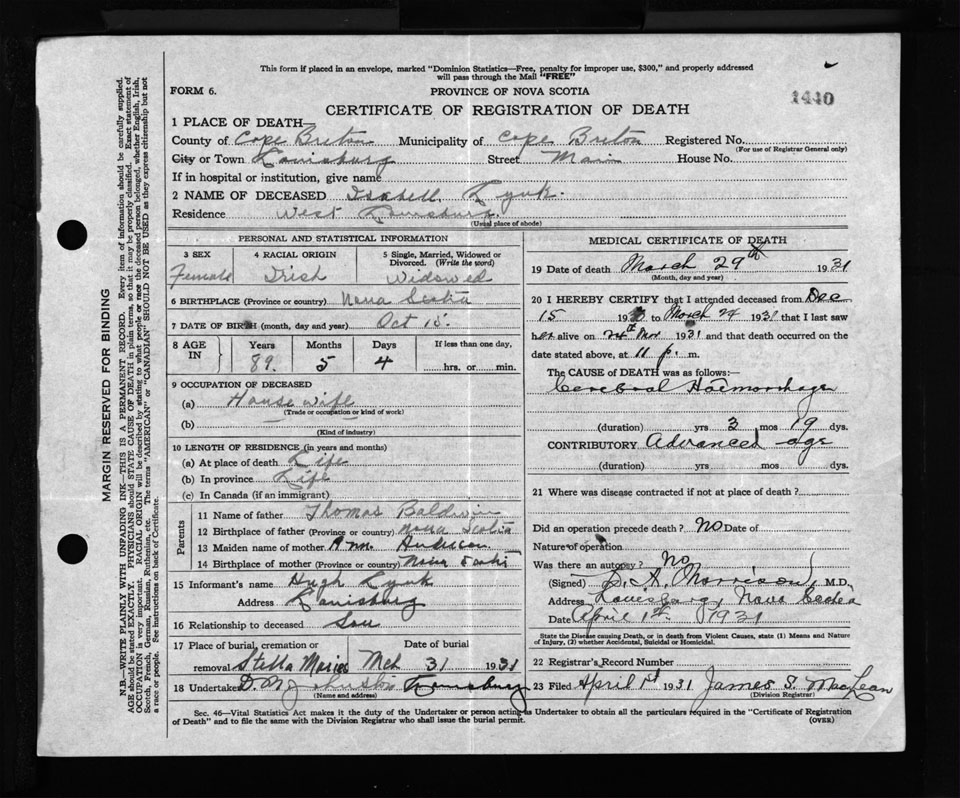 This form if placed in an envelope, marked "Dominion Statistics—Free, penalty for improper use, $300," and properly addressed
will pass through the Mail "FREE"
FORM 6.
PROVINCE OF NOVA SCOTIA
1440
CERTIFICATE OF REGISTRATION OF DEATH
1 PLACE OF DEATH—
County of Cape Breton Municipality of Cape Breton Registered No.
(For use of Registrar General only)
City or Town Louisburg Street Main House No.
If in hospital or institution, give name
2 NAME OF DECEASED Isabell Kyuk.
Residence West Louisburg.
(Usual place of abode)
PERSONAL AND STATISTICAL INFORMATION
3 SEX
Female
4 RACIAL ORIGIN
Irish
5 Single, Married, Widowed or
Divorced. (Write the word)
Widowed
6 BIRTHPLACE (Province or country) Nova Scotia
7 DATE OF BIRTH (month, day and year) Oct 15.
8 AGE
IN
Years
89.
Months
5
Days
4
If less than one day,
hrs. or min.
9 OCCUPATION OF DECEASED
(a) House wife
(Trade or occupation or kind of work)
(b)
(Kind of industry)
10 LENGTH OF RESIDENCE (in years and months)
(a) At place of death Life
(b) In province Life
(c) In Canada (if an immigrant)
Parents
11 Name of father Thomas Baldwin
12 Birthplace of father (Province or country) Nova Scotia
13 Maiden name of mother Ann
14 Birthplace of mother (Province or country) Nova Scotia
15 Informant's name Hugh Kyuk
Address Louisburg
16 Relationship to deceased Son
17 Place of burial, cremation or
removal Stella Maris
Date of burial
Mch 31 1931
18 Undertaker D M Johnston Louisburg
(Name and address)
MEDICAL CERTIFICATE OF DEATH
19 Date of death March 29th 1931
(Month, day and year)
20 I HEREBY CERTIFY that I attended deceased from Dec
15 1930 to March 24 1931 that I last saw
her alive on 24th Mar 1931 and that death occurred on the
date stated above, at 11 p. m.
The CAUSE of DEATH was as follows:
Cerebral Haemorrhage
(duration) yrs 3 mos 19 dys.
CONTRIBUTORY Advanced age
(duration) yrs mos dys.
21 Where was disease contracted if not at place of death?
Did an operation precede death? NO Date of
Nature of operation
Was there an autopsy? No
(Signed) D. A. Morrison, M.D.
Address Louisburg, Nova Scotia
Date April 1st 1931
State the Disease causing Death, or in death from Violent Causes, state (1) Means and Nature
of Injury, (2) whether Accidental, Suicidal or Homicidal.
22 Registrar's Record Number
23 Filed April 1st 1931 James S. MacLean
(Division Registrar)
Sec. 46—Vital Statistics Act makes it the duty of the Undertaker or person acting as Undertaker to obtain all the particulars required in the "Certificate of Registration
of Death" and to file the same with the Division Registrar who shall issue the burial permit.
(OVER)
MARGIN RESERVED FOR BINDING
N.B.—WRITE PLAINLY WITH UNFADING INK—THIS IS A PERMANENT RECORD. Every item of information should be carefully supplied.
AGE should be stated EXACTLY. PHYSICIANS should STATE CAUSE OF DEATH in plain terms, so that it may be properly classified. Exact statement of
OCCUPATION is very important. RACIAL ORIGIN will be described by stating to what people or race the deceased person belonged, whether English, Irish,
Scotch, French, German, Russian, Ruthenian, etc. The terms "AMERICAN" or "CANADIAN" SHOULD NOT BE USED as they express citizenship but not
a race or people. See instructions on back of Certificate.